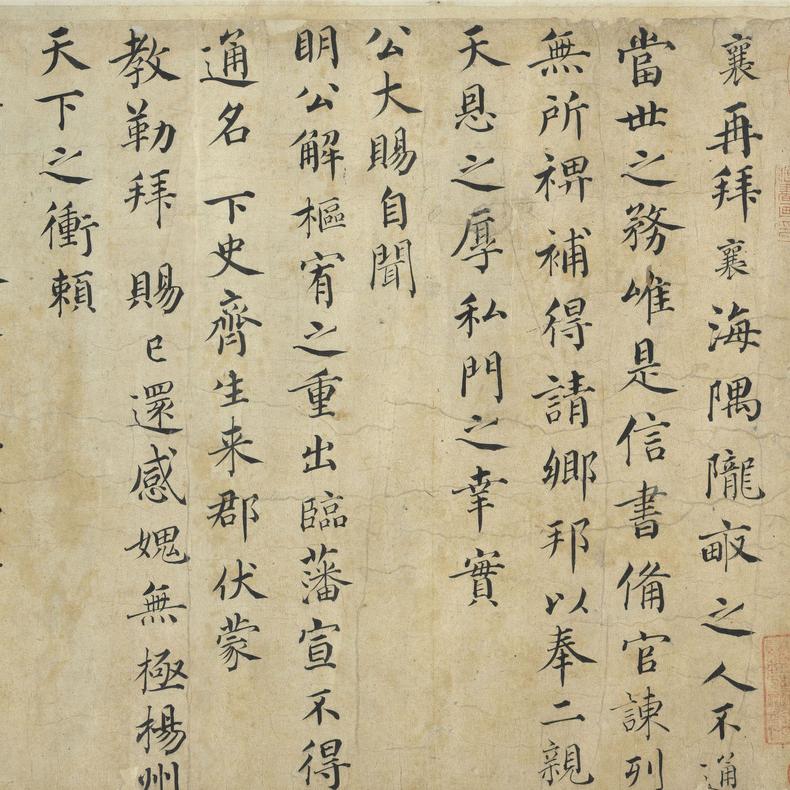 襄再拜襄海隅隴畝之人不通
當世之務唯是信書備官諫列
無所裨補得請鄉邦以奉二親
天恩之厚私門之幸實
公大賜自聞
明公解樞宥之重出臨藩宣不得
通名下史齊生来郡伏蒙
教勒拜賜已還感媿無極楊州
天下之衝賴